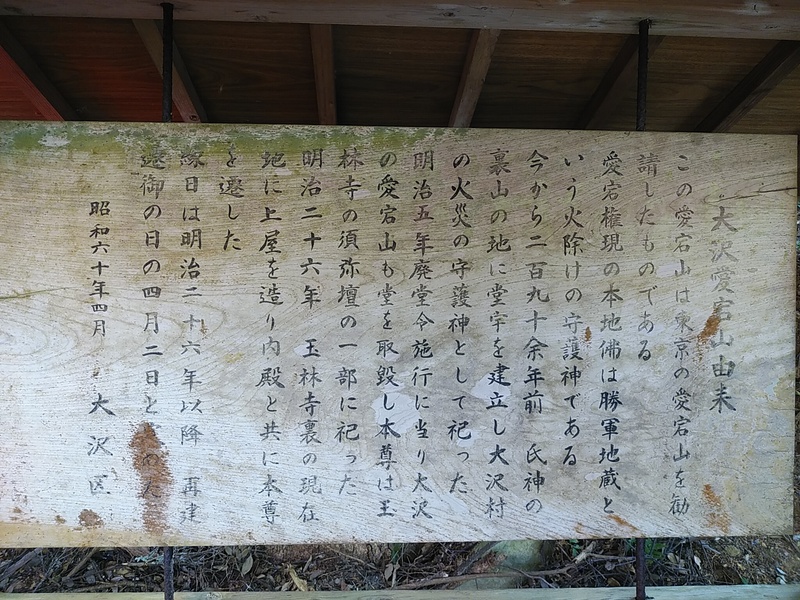 大沢愛宕山由来
この愛宕山は東京の愛宕山を勧
請したものである
愛宕権現の本地佛は勝軍地蔵と
いう火除けの守護神である
今から二百九十余年前 氏神の
裏山の地に堂宇を建立し大沢村
の火災の守護神として祀った
明治五年廃堂令施行に当り大沢
の愛宕山も堂を取毀し本尊は玉
林寺の須弥壇の一部に祀った
明治二十六年 玉林寺裏の現在
地に上屋を造り内殿と共に本尊
を遷した
縁日は明治二十六年以降 再建
遷御の日の四月二日と
昭和六十年四月 大沢区